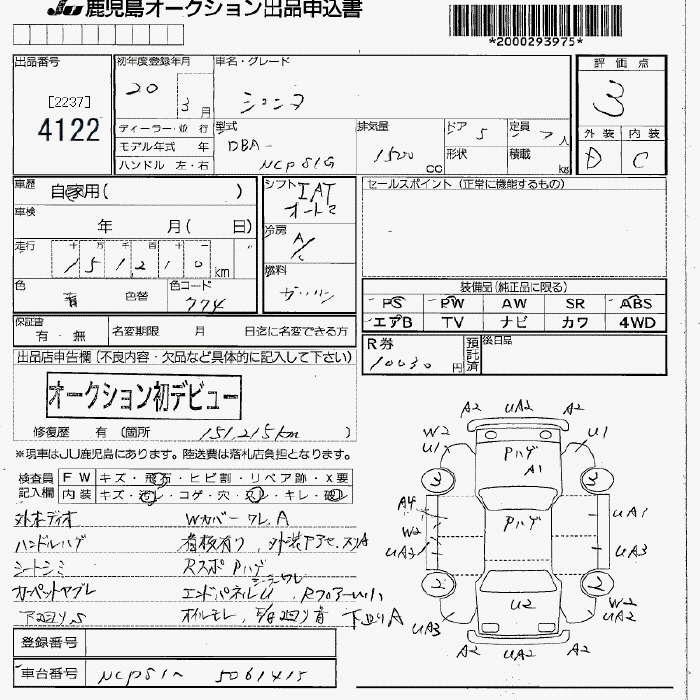 JU 鹿児島オークション出品申込書
*2000293975*
出品番号
[2237]
4122
初年度登録年月
20
3月
車名・グレード
シエンタ
評価点
3
外装 内装
D C
ディーラー・並行
モデル年式 年
ハンドル 左・右
型式
DBA-
NCP81G
排気量
1500 cc
ドア 5
形状
定員 7人
積載 kg
車歴
自家用( )
車検
年 月( 日)
走行
十 万 千 百 十 一
151210 km
色
青
色替
色コード
774
シフト
IAT
オートマ
冷房
A/C
燃料
ガソリン
セールスポイント(正常に機能するもの)
装備品(純正品に限る)
PS PW AW SR ABS
エアB TV ナビ カワ 4WD
保証書
有・無
名変期限 月 日迄に名変できる方
R券
10030円
預託済
後日品
出品店申告欄(不良内容・欠品など具体的に記入して下さい)
オークション初デビュー
修復歴 有(箇所
151,215km
)
※現車はJU鹿児島にあります。陸送費は落札店負担となります。
検査員記入欄
FW キズ・飛石・ヒビ割・リペア跡・X要
内装 キズ・汚レ・コゲ・穴・スレ・キレ・破レ
外本ディオ
Wカバーワレ.A
ハンドルハゲ
看板有り、外装
シートシミ
RスポPハゲ
カーペットヤブレ
エンドパネルU
オイルモレ
下回りA
登録番号
車台番号
5061415
A2 UA2 A2
W2
U1
U1
Pハゲ
A1
3
3
A4
Pハゲ
UA1
W2
UA3
UA3
2
2
U2
W2
UA2
UA3
A2 UA2 A2